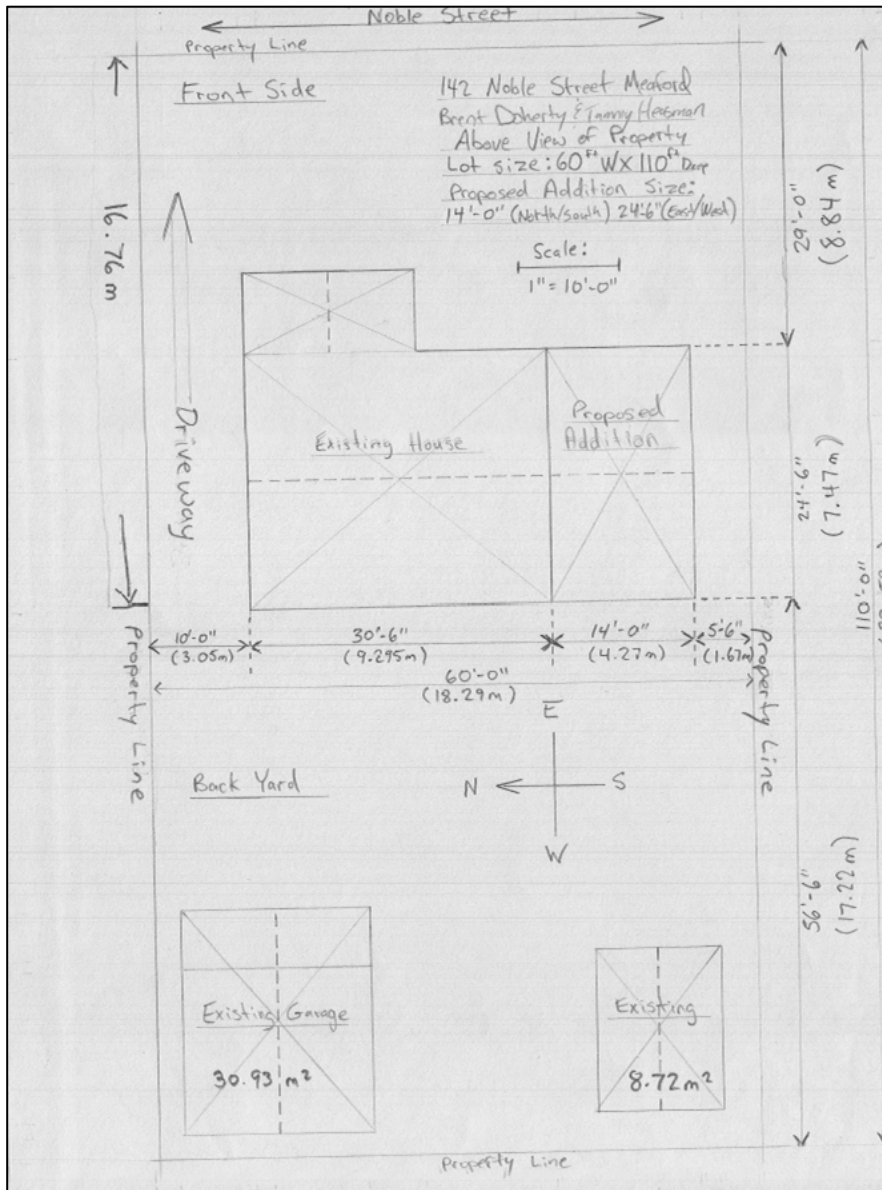 Noble Street
Property Line
Front Side
142 Noble Street Meaford
Brent Doherty & Tammy
Above View of Property
Lot size: 60ft W X 110ft Deep
Proposed Addition Size:
14'-0" (North/South) 24'-6" (East/West)
Scale:
1" = 10'-0"
16.76m
29'-0"
(8.84m)
Driveway
Existing House
Proposed
Addition
24'-6"
(7.47m)
110'-0"
10'-0"
(3.05m)
30'-6"
(9.295m)
14'-0"
(4.27m)
5'-6"
(1.67m)
60'-0"
(18.29m)
Property Line
Property Line
E
N
S
W
Back Yard
56'-6"
(17.22m)
Existing Garage
30.93 m²
Existing
8.72 m²
Property Line